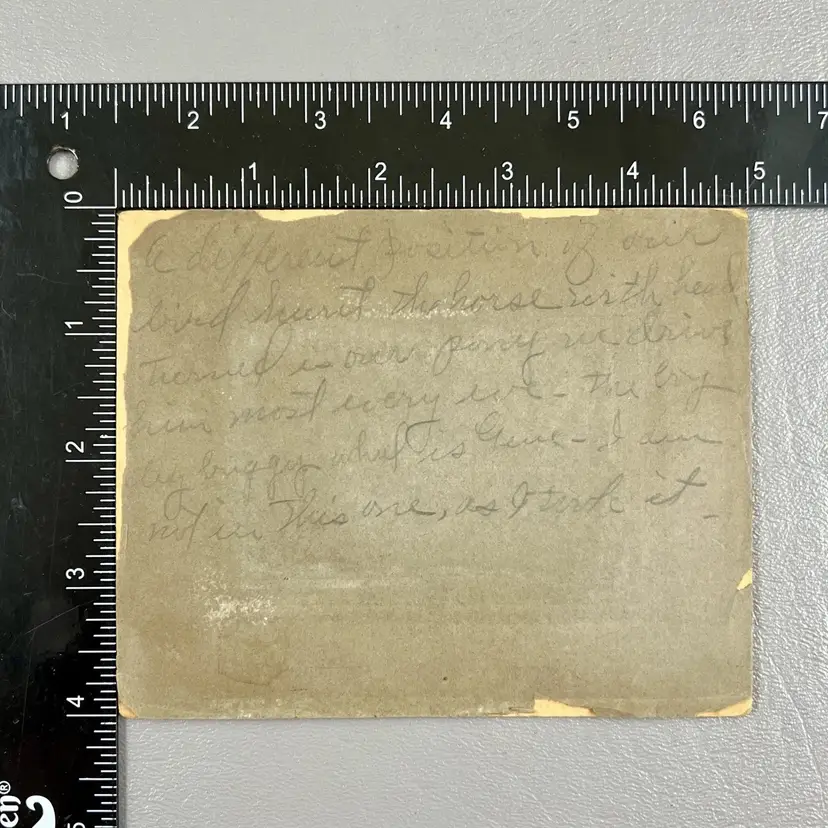 1 2 3 4 5 6 7
1 2 3 4 5
0
1
2
3
4
5
en®
A different position of our
bird hunt the horse with head
turned is our pony we drive
him most every eve - the boy
by buggy wheel is Gene - I am
not in this one, as I took it -